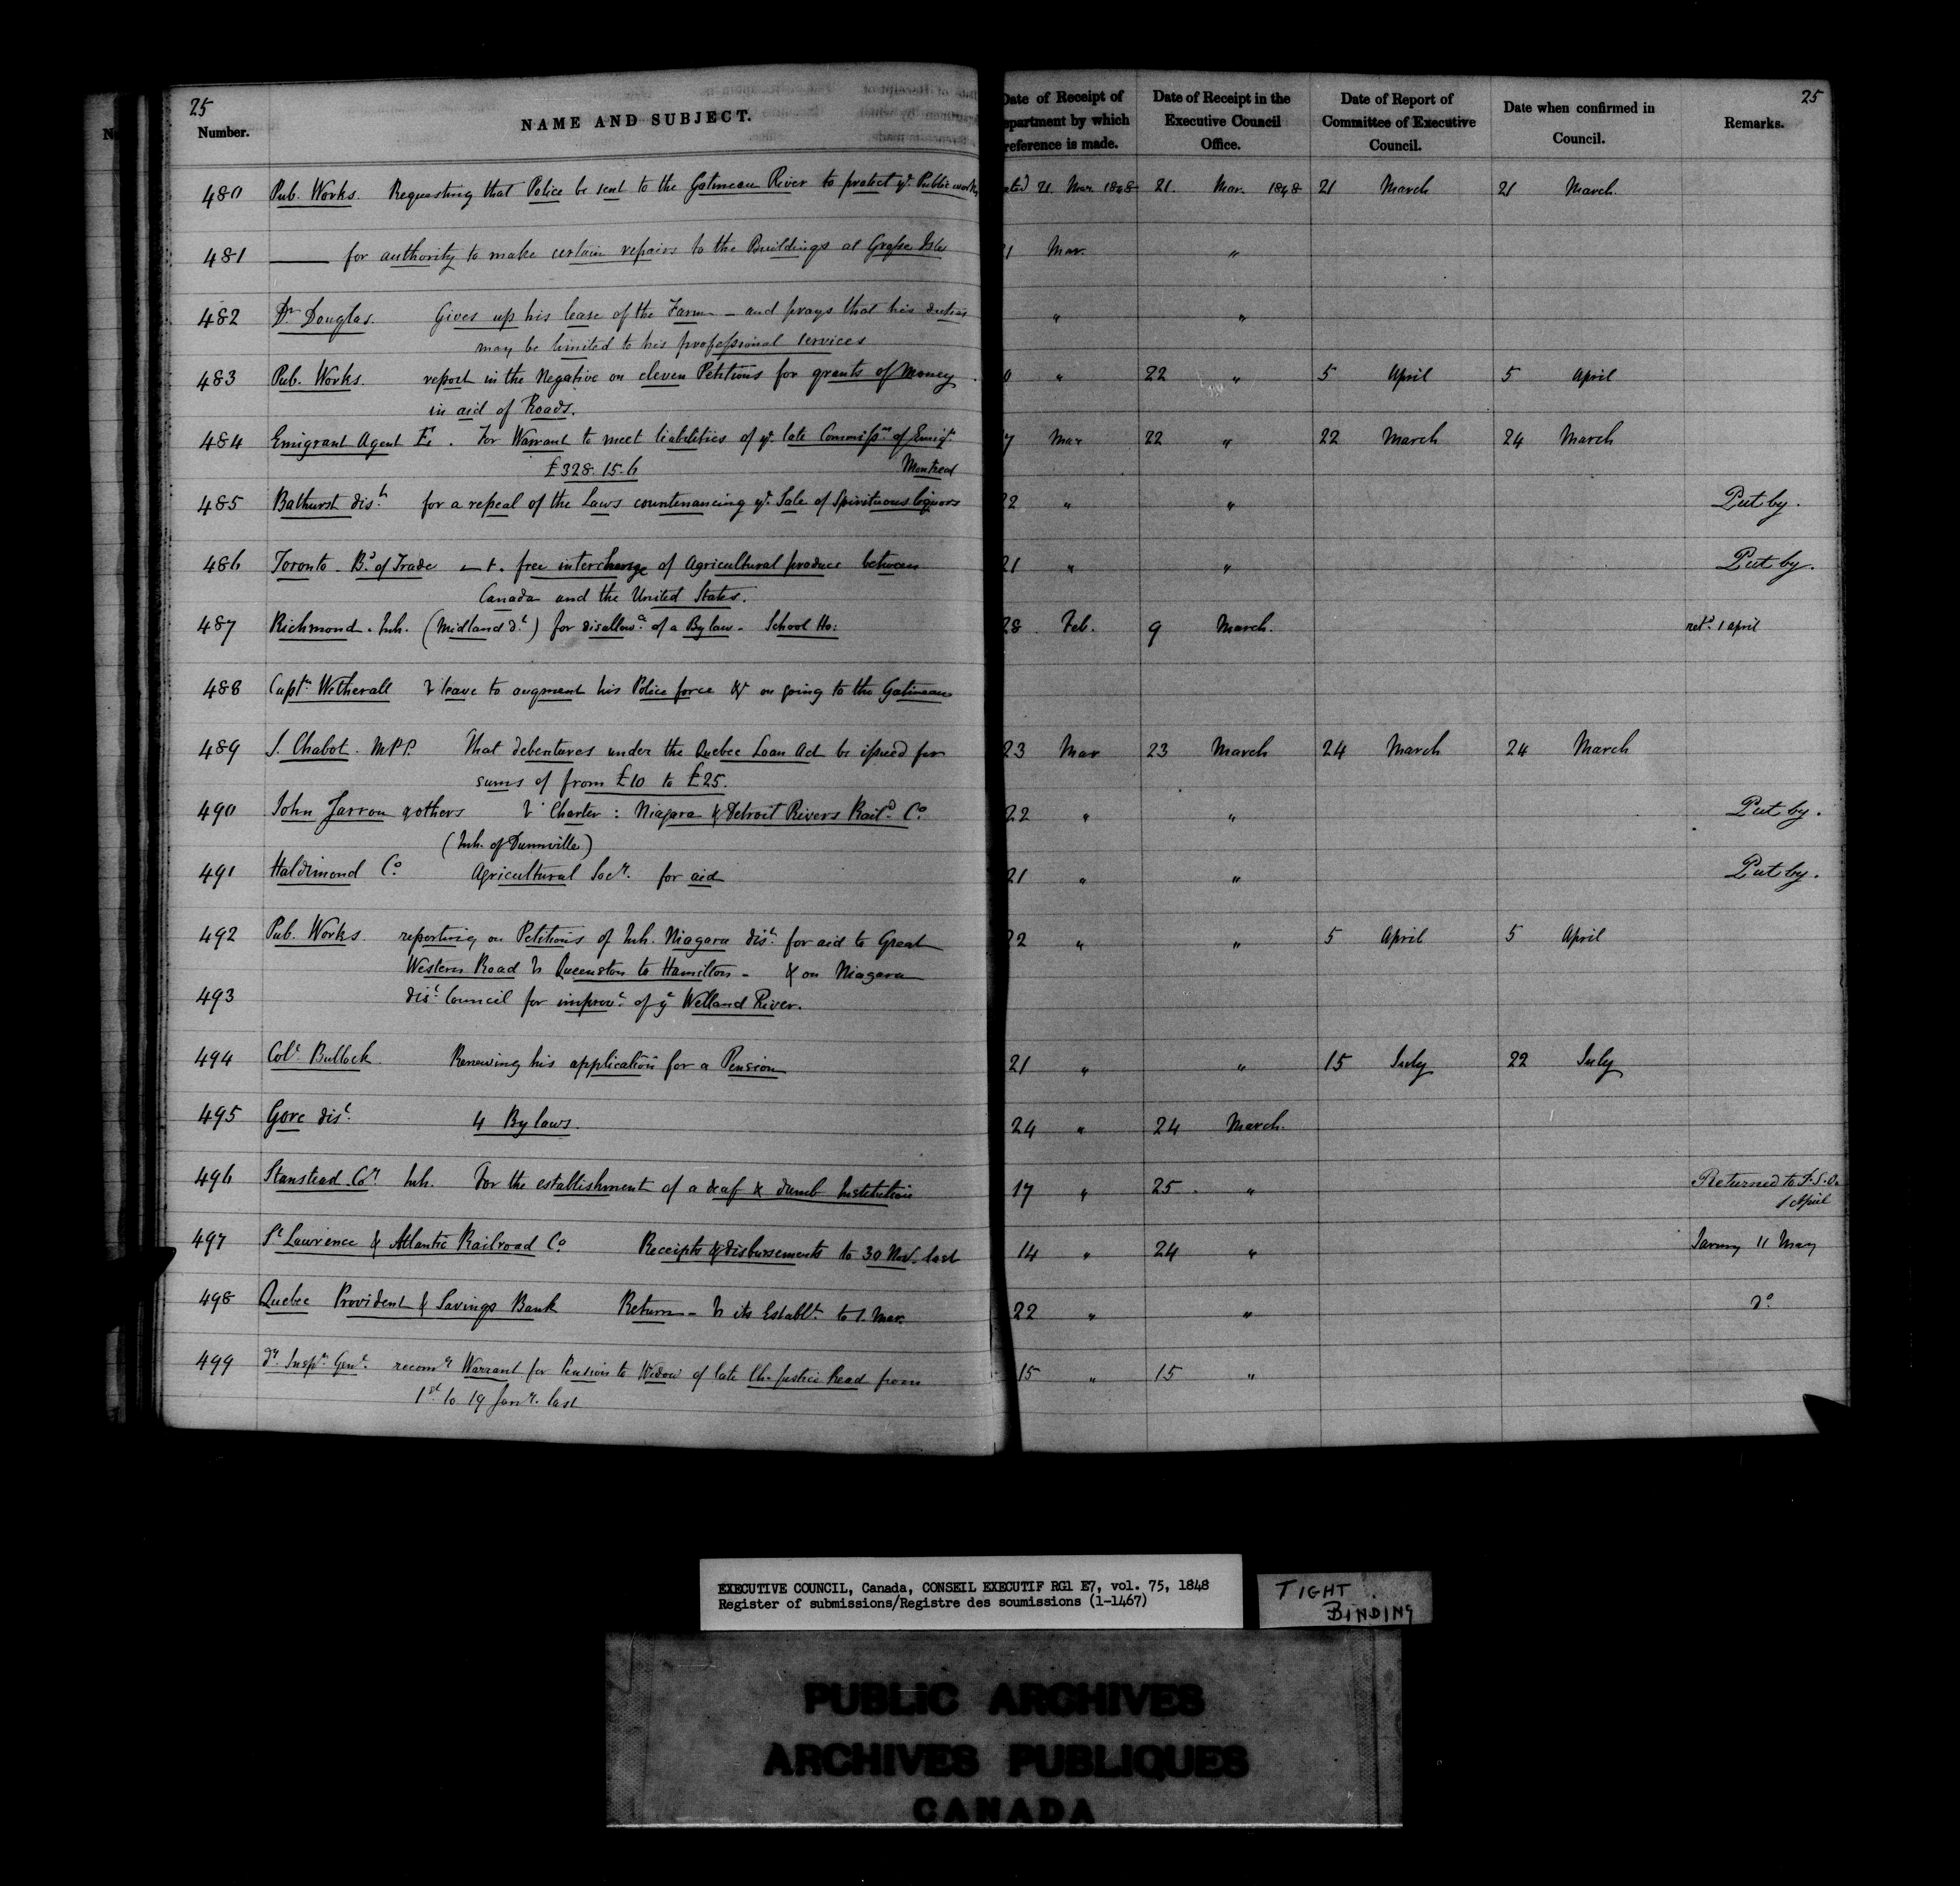 25
Number.
NAME AND SUBJECT.
Date of Receipt of
epartment by which
reference is made.
Date of Receipt in the
Executive Council
Office.
Date of Report of
Committee of Executive
Council.
Date when confirmed in
Council.
Remarks.
25
480 Pub. Works. Requesting that Police be sent to the Gatineau River to protect ye Public works 21 Mar 1848 21. Mar. 1848 21 March 21 March.
481 —— for authority to make certain repairs to the Buildings at Grosse Isle 1 Mar. "
482 Dr Douglas. Gives up his lease of the Farm – and prays that his duties " "
may be limited to his professional services
483 Pub. Works. report in the Negative on eleven Petitions for grants of Money 0 " 22 " 5 April 5 April
in aid of Roads.
484 Emigrant Agent . For Warrant to meet liabilities of ye late Commissr of Emign 7 Mar 22 " 22 March 24 March
£328. 15. 6 Montreal
485 Bathurst dist for a repeal of the Laws countenancing ye Sale of Spirituous liquors 22 " " Put by.
486 Toronto – Bd of Trade free interchange of Agricultural produce between 21 " " Put by.
Canada and the United States.
487 Richmond. Inh. (Midland dt) for disallowce of a By law – School Ho: 28 Feb. 9 March. retd 1 april
488 Captn Wetherall leave to augment his Police force & on going to the Gatineau
489 J. Chabot. M.P.P. That debentures under the Quebec Loan Act be issued for 23 Mar 23 March 24 March 24 March
sums of from £10 to £25.
490 John Jarron & others Charter: Niagara & Detroit Rivers Raild Co 22 " " Put by.
(Inh. of Dunnville)
491 Haldimond Co Agricultural Socy. for aid 21 " " Put by.
492 Pub. Works. reporting on Petitions of Inh. Niagara dist for aid to Great 22 " " 5 April 5 April
Western Road Queenston to Hamilton – & on Niagara
493 dist Council for improvt of ye Welland River.
494 Coll Bullock Renewing his application for a Pension 21 " " 15 July 22 July
495 Gore dist 4 By laws. 24 " 24 March.
496 Stanstead Coy Inh. For the establishment of a deaf & dumb Institution 17 " 25 . " Returned to P.S.O.
1 April
497 St Lawrence & Atlantic Railroad Co Receipts & disbursements to 30 Nov. last 14 " 24 " 11 May
498 Quebec Provident & Savings Bank Return – its Establt to 1. Mar. 22 " " do
499 Inspr Genl recomg Warrant for Pension to Widow of late Ch. Justice Read from 15 " 15 "
1st to 19 Jany. last
EXECUTIVE COUNCIL, Canada, CONSEIL EXECUTIF RG1 E7, vol. 75, 1848
Register of submissions/Registre des soumissions (1-1467)
TIGHT
BINDING
PUBLIC ARCHIVES
ARCHIVES PUBLIQUES
CANADA